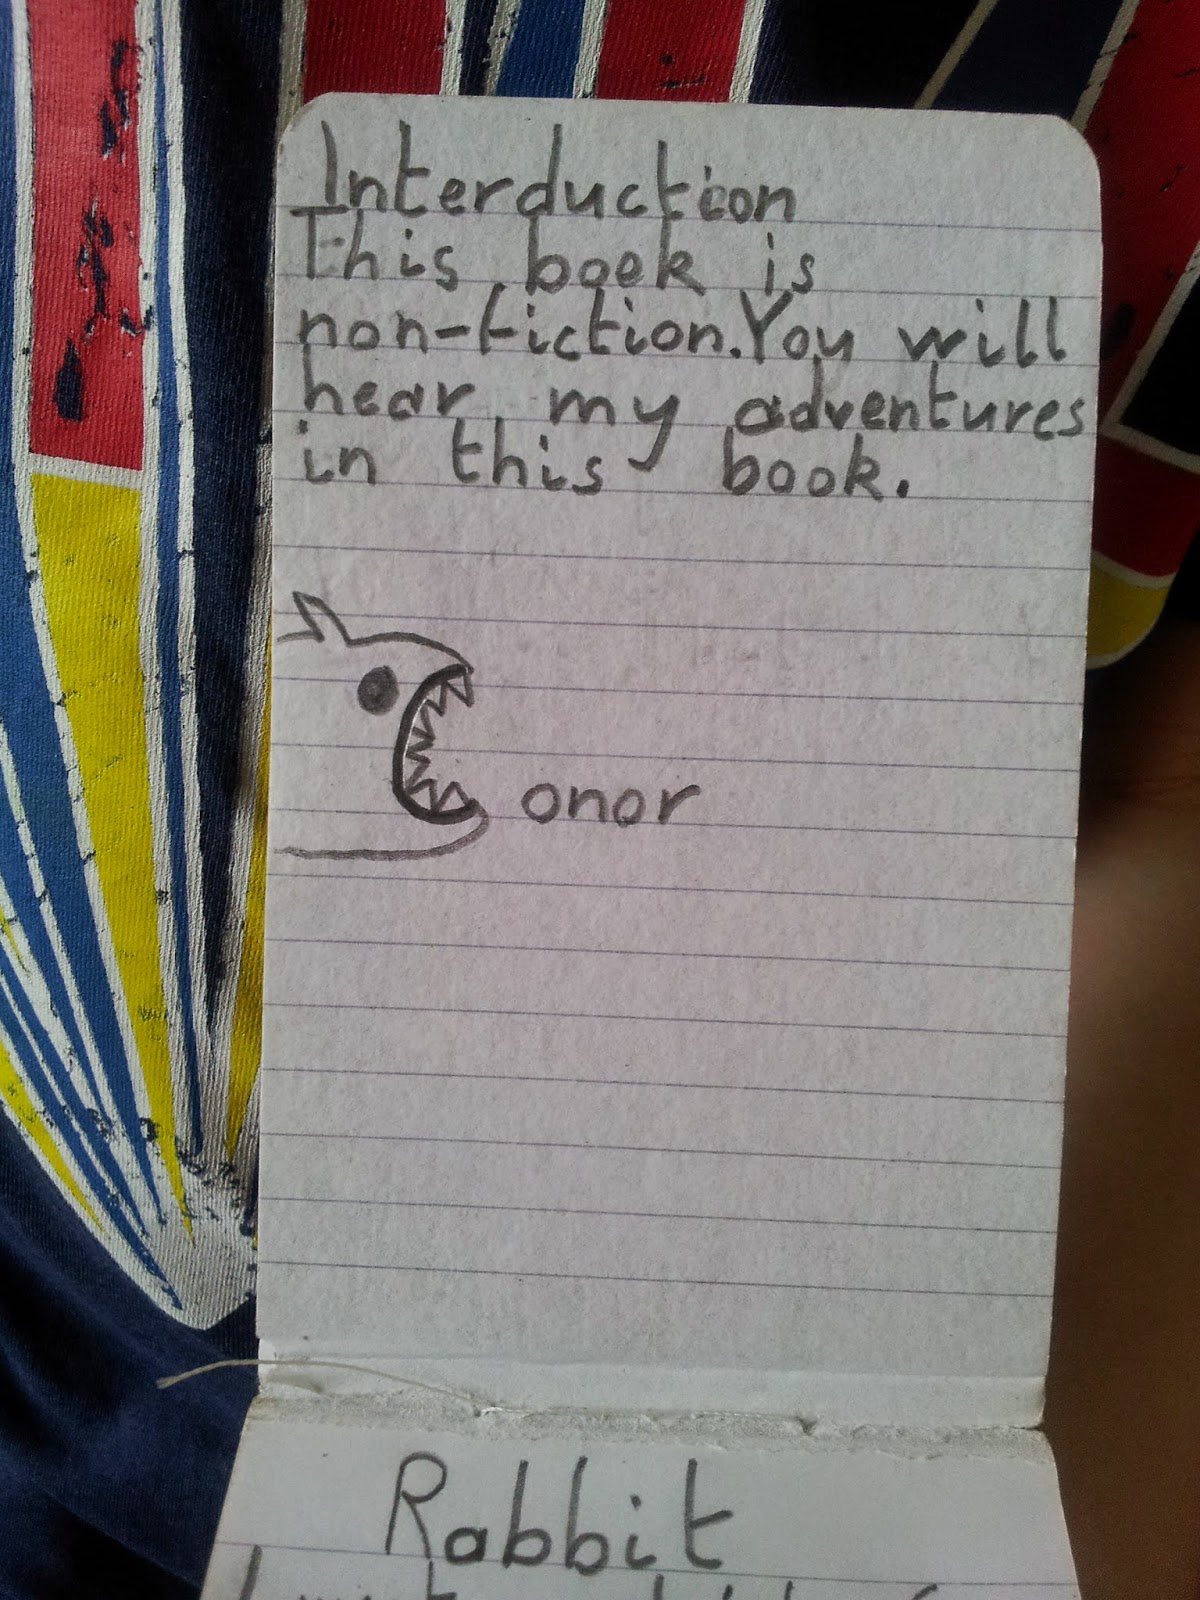 Interduction
This book is
non-fiction. You will
hear my adventures
in this book.
Conor
Rabbit